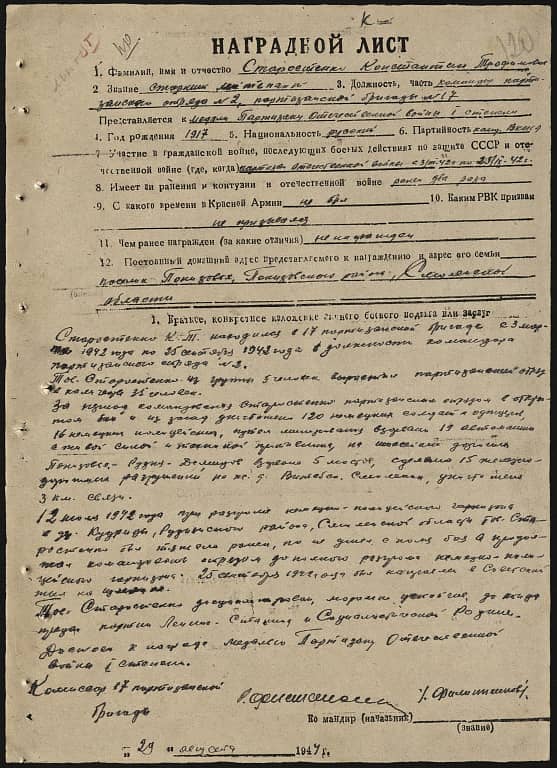 К
120
НАГРАДНОЙ ЛИСТ
1. Фамилия, имя и отчество Старостенко Константин Трофимович
2. Звание старший лейтенант 3. Должность, часть командир парти-
занского отряда №2, партизанской бригады №17
Представляется к медали Партизану Отечественной Войны I степени
4. Год рождения 1917 5. Национальность русский 6. Партийность
7. Участие в гражданской войне, последующих боевых действиях по защите СССР и оте-
чественной войне (где, когда) партизан отечественной войны с
8. Имеет ли ранения и контузии в отечественной войне ранен два раза
9. С какого времени в Красной Армии не был 10. Каким РВК призван
не призывался
11. Чем ранее награжден (за какие отличия) не награжден
12. Постоянный домашний адрес представляемого к награждению и адрес его семьи
поселок Понизовье, Понизовского района, Смоленской
области
1. Краткое, конкретное изложение личного боевого подвига или заслуг
Старостенко К. Т. находился в 17 партизанской бригаде с 3 мар-
та 1942 года по 25 сентября 1942 года в должности командира
партизанского отряда №2.
Тов. Старостенко из группы 5 человек вырастил партизанский отряд
в количестве 35 человек.
За период командования Старостенко партизанским отрядом в откры-
том бою и из засад уничтожено 120 немецких солдат и офицеров,
16 немецких полицейских, путем минирования взорвали 19 автомашин
с живой силой и техникой противника, на шоссейной дороге
Понизовье - Рудня - Демидов взорвано 5 мостов, сделано 15 железно-
дорожных разрушений по ж. д. Витебск - Смоленск, уничтожено
3 км. связи.
12 июля 1942 года при разгроме немецко-полицейского гарнизона
в д. Кудрицы, Руднянского района, Смоленской области тов. Ста-
ростенко был тяжело ранен, но не ушел с поля боя а продол-
жал командовать отрядом до полного разгрома немецко-поли-
цейского гарнизона. 25 сентября 1942 года был направлен в Советский
тыл на
Тов. Старостенко дисциплинирован, морально устойчив, до конца
предан партии Ленина - Сталина и Социалистической Родине.
Достоин к награде медалью Партизану Отечественной
Войны I степени.
Комиссар 17 партизанской
бригады
Командир (начальник)
(звание)
„29 августа 1944 г.